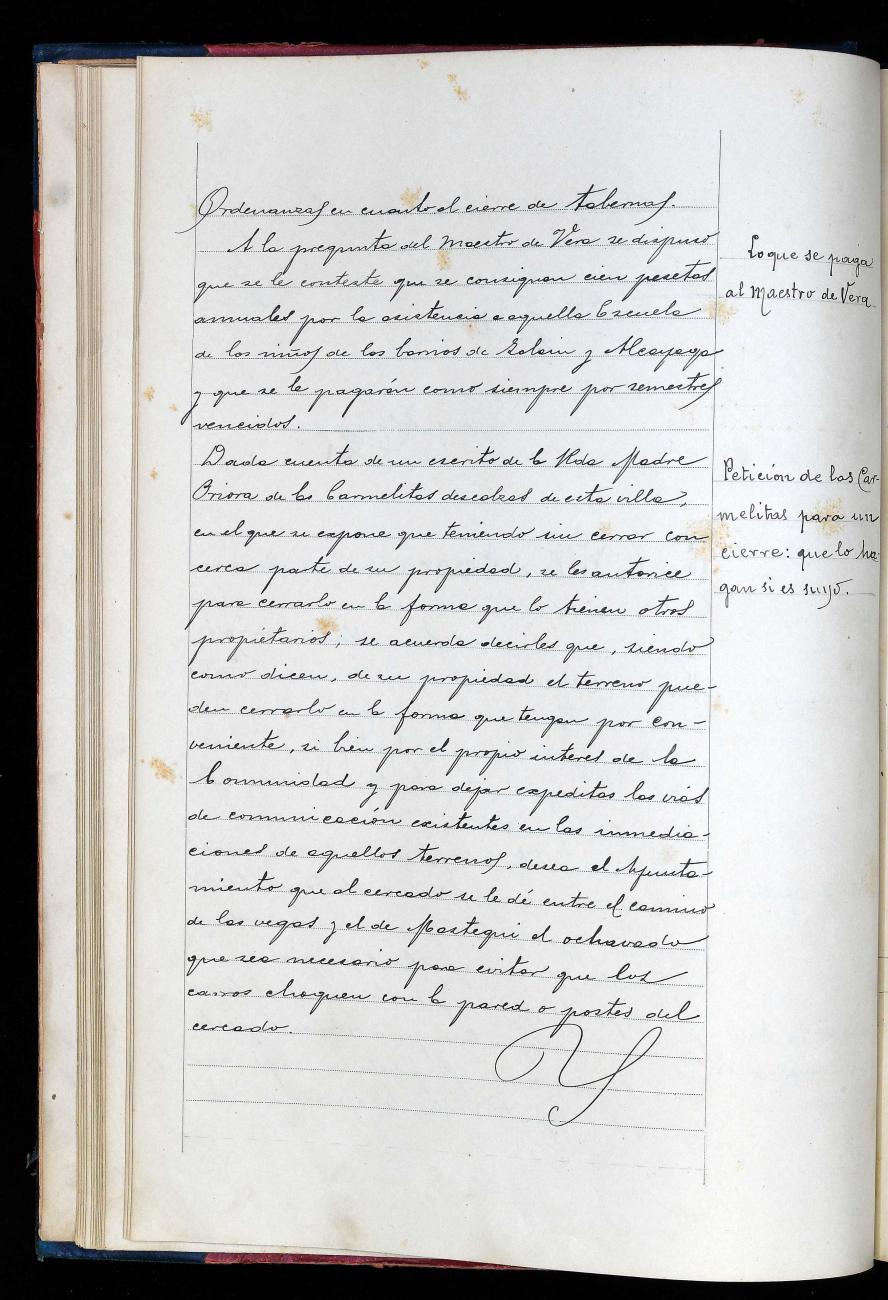 Ordenanzas en cuanto al cierre de tabernas.
A la pregunta del Maestro de Vera se dispuso
que se le conteste que se consignan cien pesetas
anuales por la asistencia a aquella Escuela
de los niños de los barrios de Zalain y Alcayaga
y que se le pagarán como siempre por semestres
vencidos.
Lo que se paga
al Maestro de Vera
Dada cuenta de un escrito de la Rda Madre
Priora de las Carmelitas descalzas de esta villa,
en el que se expone que teniendo sin cerrar con
cerca parte de su propiedad, se les autorice
para cerrarlo en la forma que lo tienen otros
propietarios; se acuerda decirles que, siendo
como dicen, de su propiedad el terreno pue-
den cerrarlo en la forma que tengan por con-
veniente, si bien por el propio interés de la
Comunidad y para dejar expeditas las vías
de comunicación existentes en las inmedia-
ciones de aquellos terrenos, desea el Ayunta-
miento que al cercado se le dé entre el camino
de las vegas y el de Mastegui el ochavado
que sea necesario para evitar que los
carros choquen con la pared o postes del
cercado.
Petición de las Car-
melitas para un
cierre: que lo ha-
gan si es suyo.